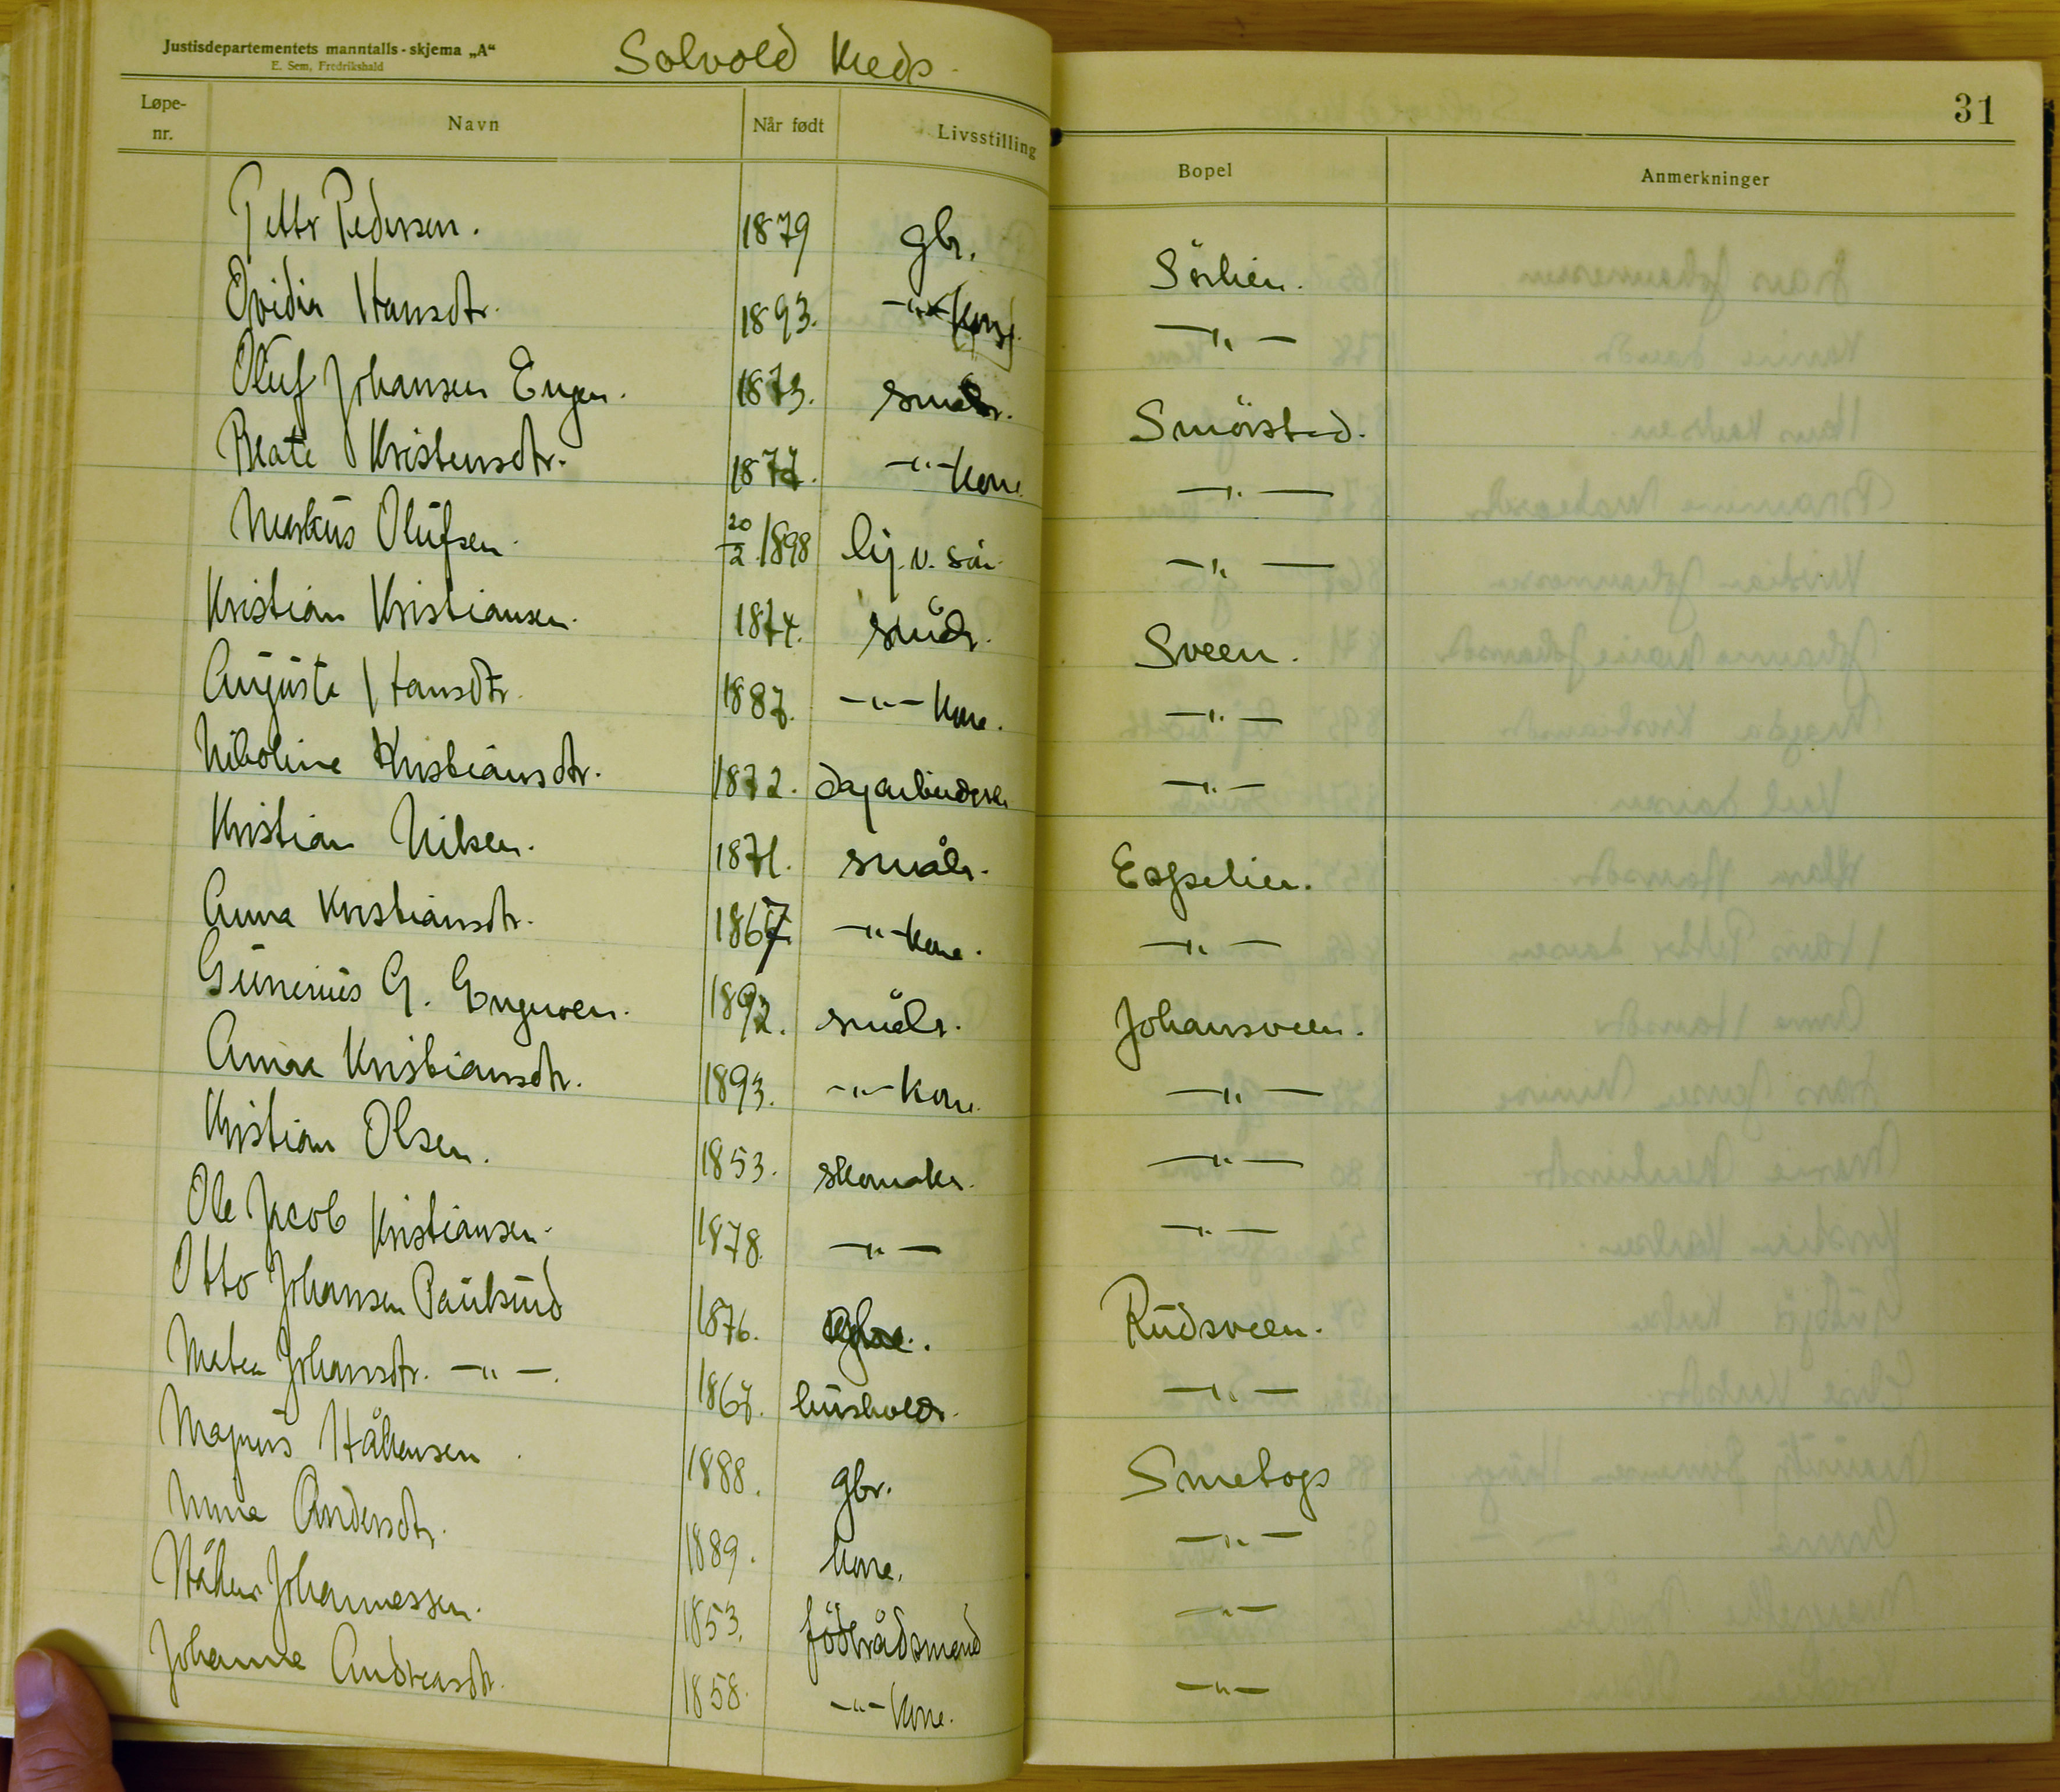 Justisdepartementets manntalls-skjema „A“
E. Sem, Fredrikshald
Solvold Kreds
31
Løpe-nr. Navn Når født Livsstilling Bopel Anmerkninger
Petter Pedersen. 1879 gbr. Sörlien.
Ovidia Hansdtr. 1893. -"- Kone -"-
Oluf Johansen Engen. 1873. småbr. Smörsted.
Beate Kristensdtr. 1877. -"- Kone -"-
Markus Olufsen. 20/2 1898 hj. v. sön -"-
Kristian Kristiansen. 1874. småbr. Sveen.
Auguste Hansdtr. 1887. -"- Kone. -"-
Nikoline Kristiansdtr. 1872. dagarbeiderske -"-
Kristian Nilsen. 1871. småbr. Espelien.
Anna Kristiansdtr. 1867. -"- Kone. -"-
Gunerius G. Engmoen. 1892. småbr. Johansveen.
Anna Kristiansdtr. 1893. -"- Kone. -"-
Kristian Olsen. 1853. skomaker. -"-
Ole Jacob Kristiansen. 1878. -"- -"-
Otto Johansen Paulsrud 1876. Rudsveen.
Matea Johansdtr. -"-. 1867. husholdr. -"-
Magnus Håkensen 1888. gbr. Smetops
Anna Andersdtr. 1889. Kone. -"-
Håken Johannessen. 1853. föderådsmand -"-
Johanne Andreasdtr. 1858. -"- Kone. -"-